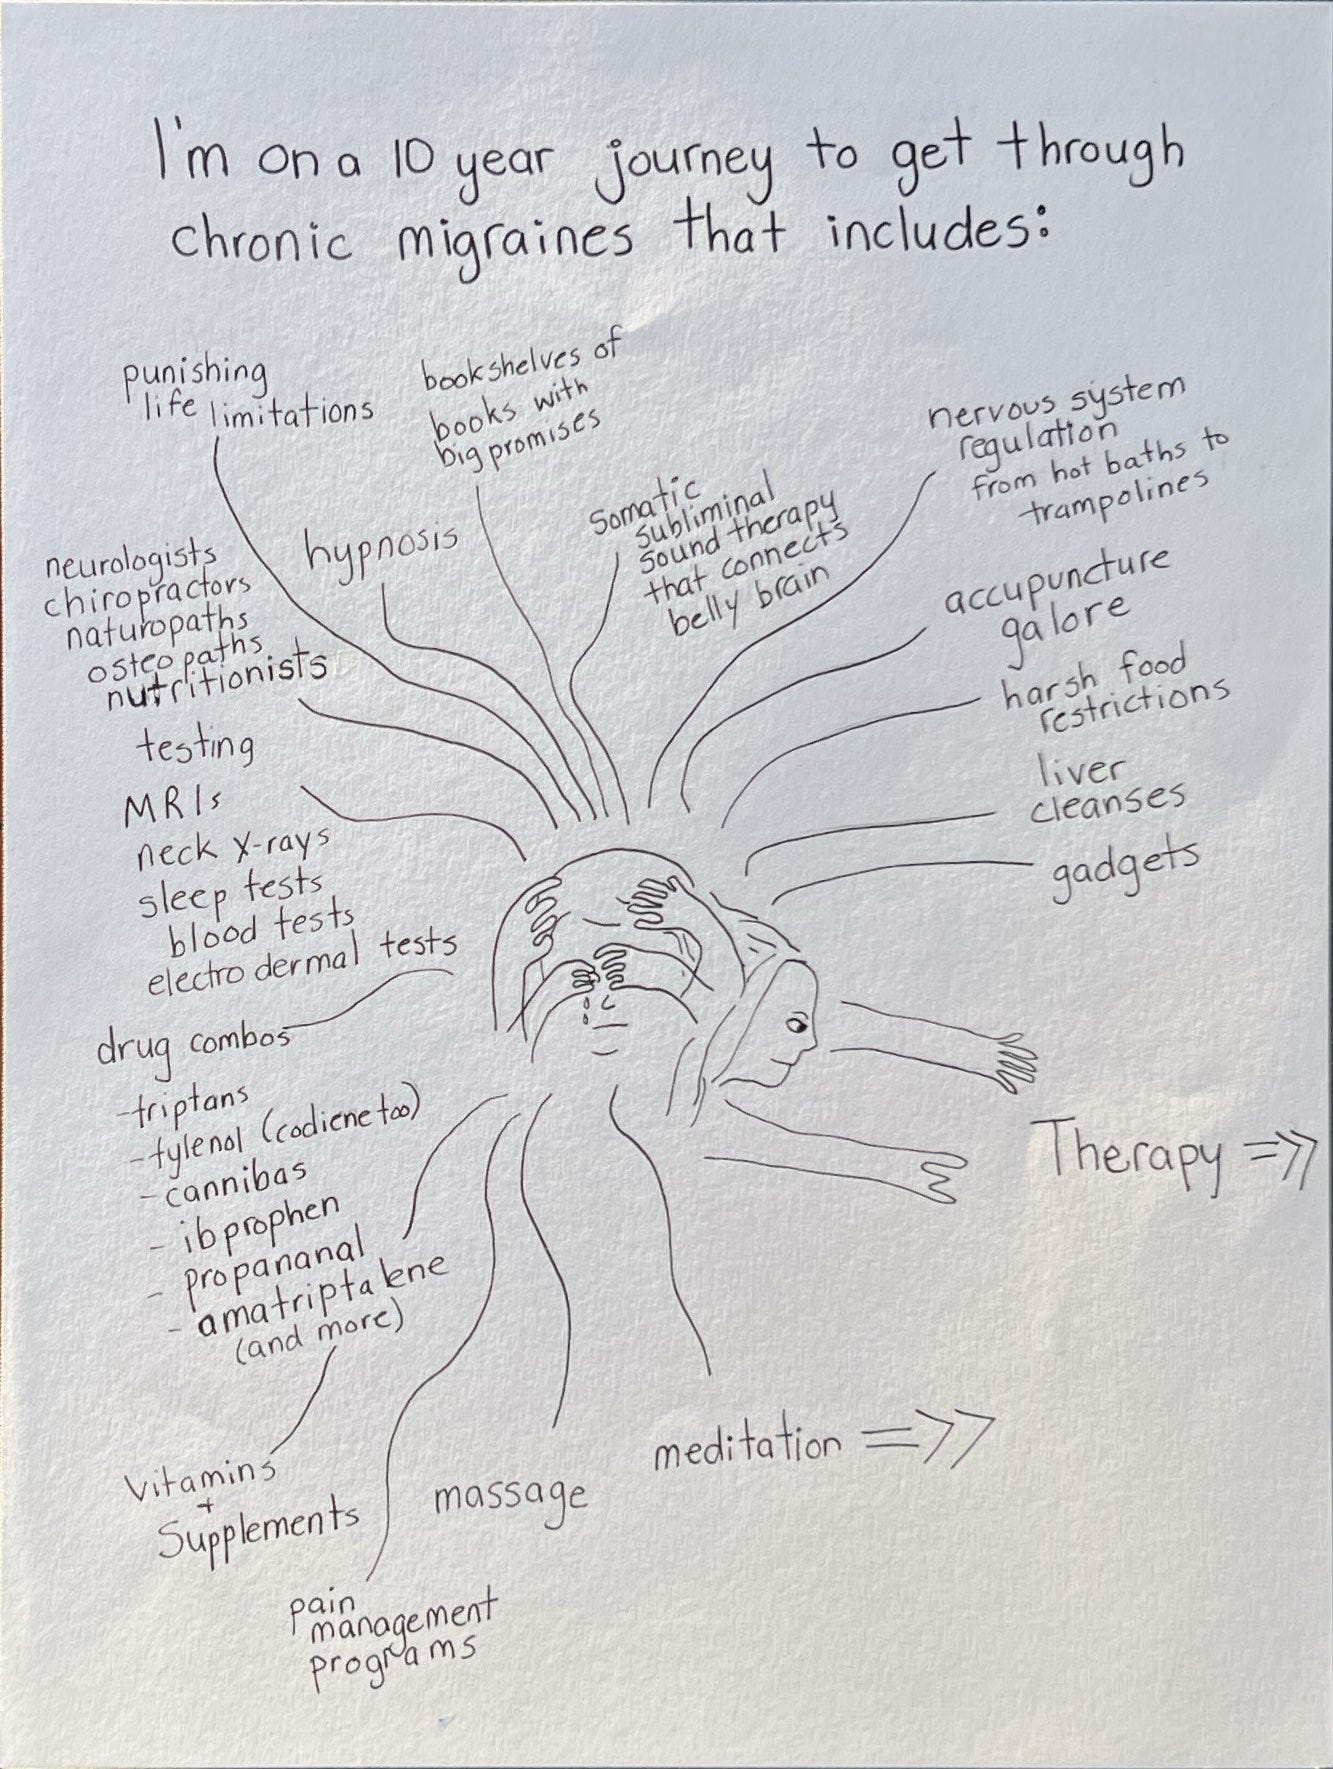 I'm on a 10 year journey to get through
chronic migraines that includes:
punishing
life limitations
bookshelves of
books with
big promises
nervous system
regulation
from hot baths to
trampolines
hypnosis
somatic
subliminal
sound therapy
that connects
belly brain
neurologists
chiropractors
naturopaths
osteopaths
nutritionists
accupuncture
galore
harsh food
restrictions
testing
MRIs
neck x-rays
sleep tests
blood tests
electro dermal tests
liver
cleanses
gadgets
drug combos
- triptans
- tylenol (codiene too)
- cannibas
- ibprophen
- propananal
- amatriptalene
(and more)
Therapy =>>
vitamins
+
Supplements
massage
meditation =>>
pain
management
programs